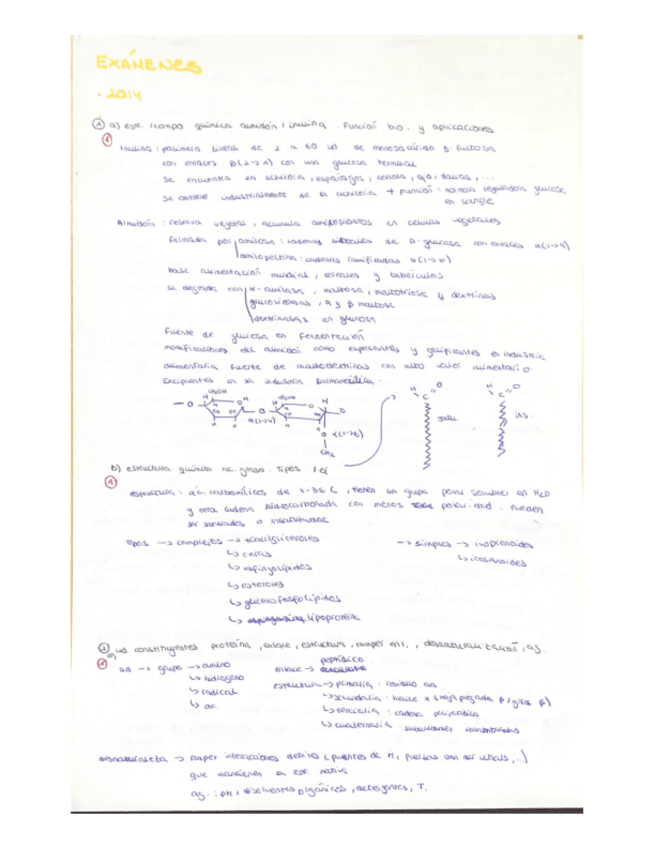 EXÁMENES
· 2014
① a) estr. / compo química almidón / inulina. Función bio. y aplicaciones
①
Inulina : polímero lineal de 2 a 60 ud de monosacárido β-fructosa
con enlaces β(2→1) con una glucosa terminal
se encuentra en achicoria, espárragos, cebolla, ajo, dalias, ...
se obtiene industrialmente de la achicoria + función : reguladora glucosa
en sangre
Almidón : reserva vegetal, acumula amiloplastos en células vegetales
formada por amilosa : cadenas lineales de D-glucosa con enlaces α(1→4)
amilopectina : cadenas ramificadas α(1→6)
base alimentación mundial, cereales y tubérculos
se degrada con α-amilasa, maltosa, maltotriosa y dextrinas
glucosidasas, α y β maltosa
dextrinasas en glucosa
Fuente de glucosa en fermentación
modificaciones del almidón como espesantes y gelificantes en industria
alimentaria. Fuente de maltodextrinas con alto valor alimentario
Excipientes en la industria farmacéutica.
CH₂OH
α(1→4)
α(1→6)
CH₂
b) estructura química ac. graso. Tipos / ej
①
estructura : ác. carboxílicos de 4-36 C, tienen un grupo polar soluble en H₂O
y otra cadena hidrocarbonada con menos polaridad. Pueden
ser saturados o insaturados
Tipos → complejos → triacilgliceroles
↳ ceras
↳ esfingolípidos
↳ esteroles
↳ glicerofosfolípidos
↳ lipoproteína
→ simples → isoprenoides
↳ icosanoides
② ud constituyentes proteína, enlace, estructura, romper enl., desnaturalización, ag.
ud → grupo → amino
↳ hidrógeno
↳ radical
↳ ac.
enlace → peptídico
estructura → primaria : residuo aa
↳ secundaria : hélice α (hoja plegada β / giros β)
↳ terciaria : cadena polipeptídica
↳ cuaternaria subunidades ensambladas
desnaturaliza → romper interacciones débiles (puentes de H, fuerzas van der Waals, ...)
que mantienen la estr. nativa
ag. : pH, disolventes orgánicos, detergentes, T.